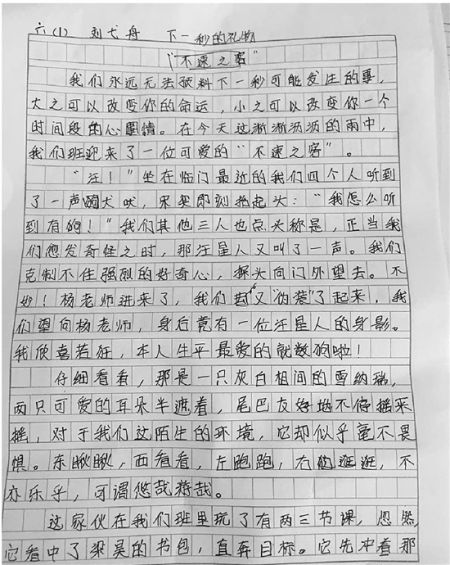 六(1) 刘弋舟 下一秒的礼物
"不速之客"
我们永远无法预料下一秒可能发生的事,
大之可以改变你的命运,小之可以改变你一个
时间段的心情。在今天这淅淅沥沥的雨中,
我们班迎来了一位可爱的"不速之客"。
"汪!"坐在临门最近的我们四个人听到
了一声犬吠,梁昊即刻抬起头:"我怎么听
到有狗!"我们其他三人也点头称是,正当我
们想发奇怪之时,那汪星人又叫了一声。我们
克制不住强烈的好奇心,探头向门外望去。不
妙!杨老师进来了,我们又"伪装"了起来,我
们望向杨老师,身后竟有一位汪星人的身影。
我欣喜若狂,本人生平最爱的就数狗啦!
仔细看看,那是一只灰白相间的雪纳瑞,
两只可爱的耳朵半遮着,尾巴友好地不停摇来
摇,对于我们这陌生的环境,它却似乎毫不畏
惧。东瞅瞅,西看看,左跑跑,右逛逛,不
亦乐乎,可谓悠哉游哉。
这家伙在我们班里玩了有两三节课,忽然,
它看中了梁昊的书包,直奔目标。它先冲着那